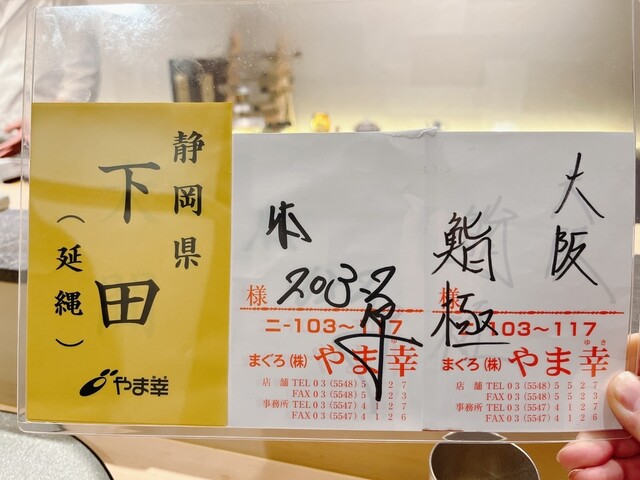 静岡県
下田
（延縄）
やま幸
様
ニ-103～117
まぐろ（株）やま幸
店 舗 TEL 03 (5548) 5 2 7
FAX 03 (5548) 5 23
事務所 TEL 03 (5547) 4 1 2 7
FAX 03 (5547) 4 1 2 6
大阪
鮨極
103～117
まぐろ（株）やま幸
ゆき
店 舗 TEL 03 (5548) 5 5 2 7
FAX 03 (5548) 5 5 2 3
事務所 TEL 03 (5547) 4 1 2 7
FAX 03 (5547) 4 1 2 6